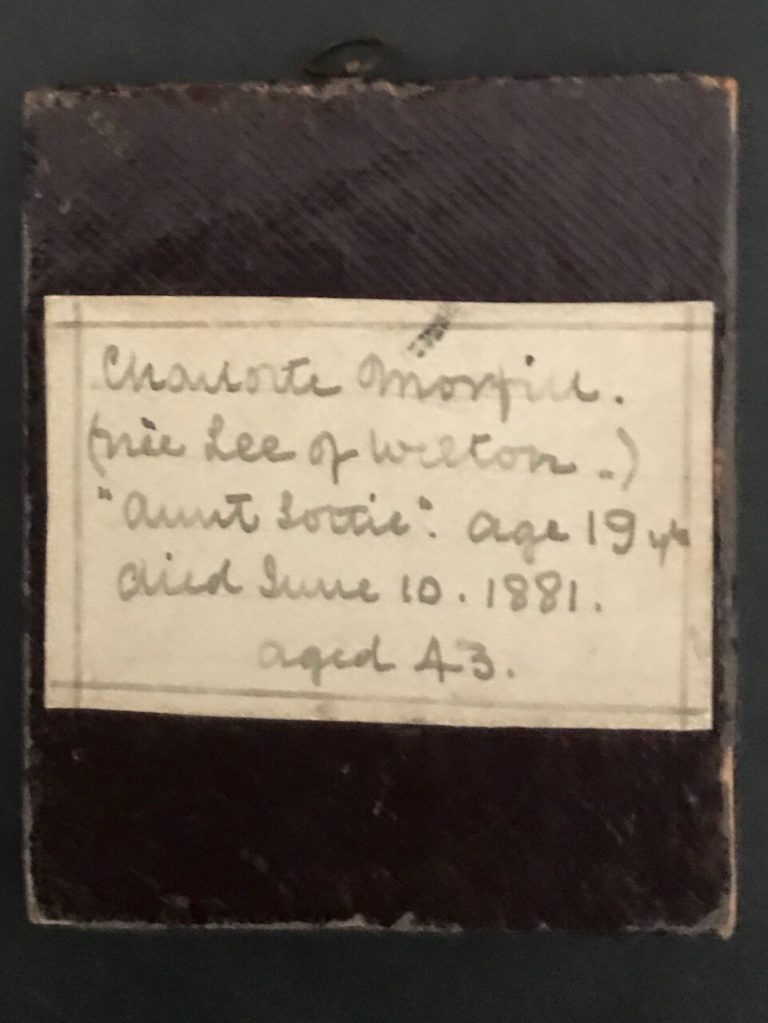 Charlotte Morfill.
(née Lee of Welton..)
"Aunt Lottie". age 19 yrs
died June 10. 1881.
aged 43.